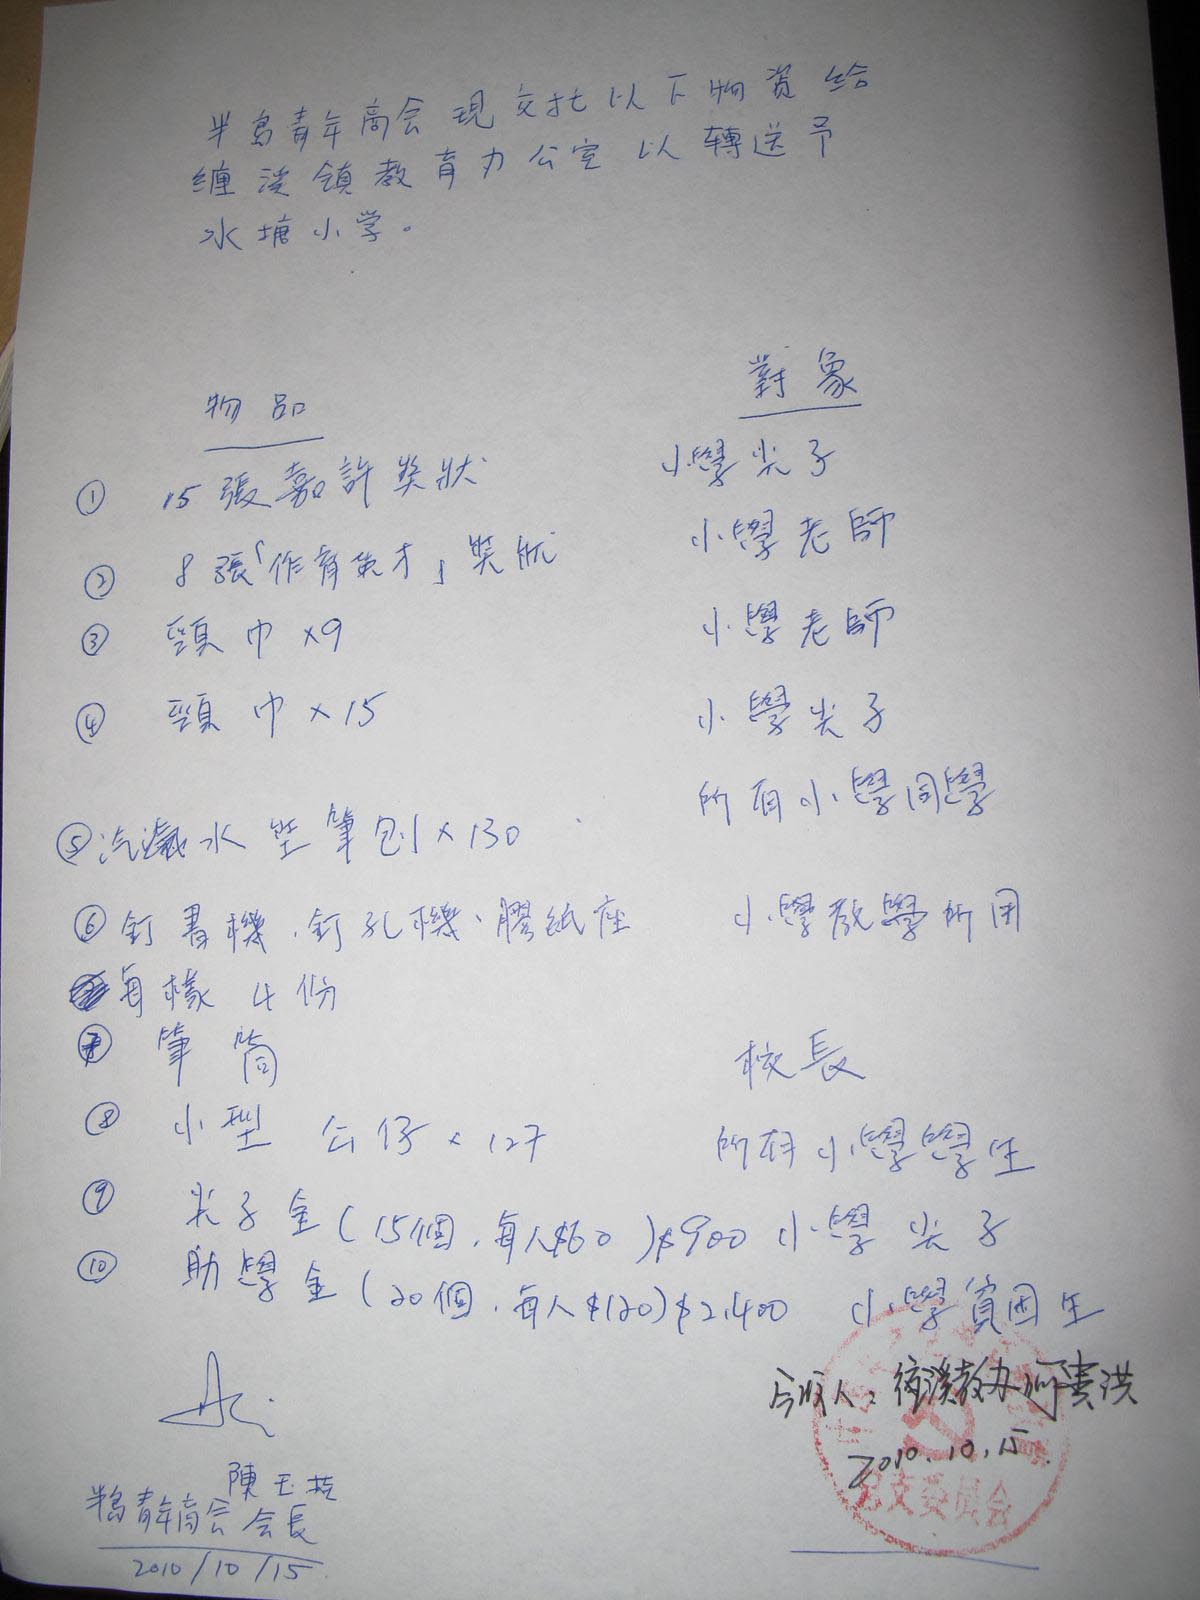 半島青年商会現交托以下物資給
缠淡镇教育办公室以轉送予
水塘小学。
物品 對象
① 15張嘉許奨狀 小學尖子
② 8張「作育英才」奨狀 小學老師
③ 頸巾×9 小學老師
④ 頸巾×15 小學尖子
所有小學同學
⑤汽水型筆刨×130
⑥釘書機、釘孔機、膠紙座 小學教學所用
每樣4份
⑦ 筆筒 校長
⑧ 小型公仔×127 所有小學學生
⑨ 尖子金(15個,每人$60)$900 小學尖子
⑩ 助學金(20個,每人$120)$2,400 小學貧困生
收人:教办何贵洪
2010.10.15.
党支委員会
陳玉
半島青年商会会長
2010/10/15